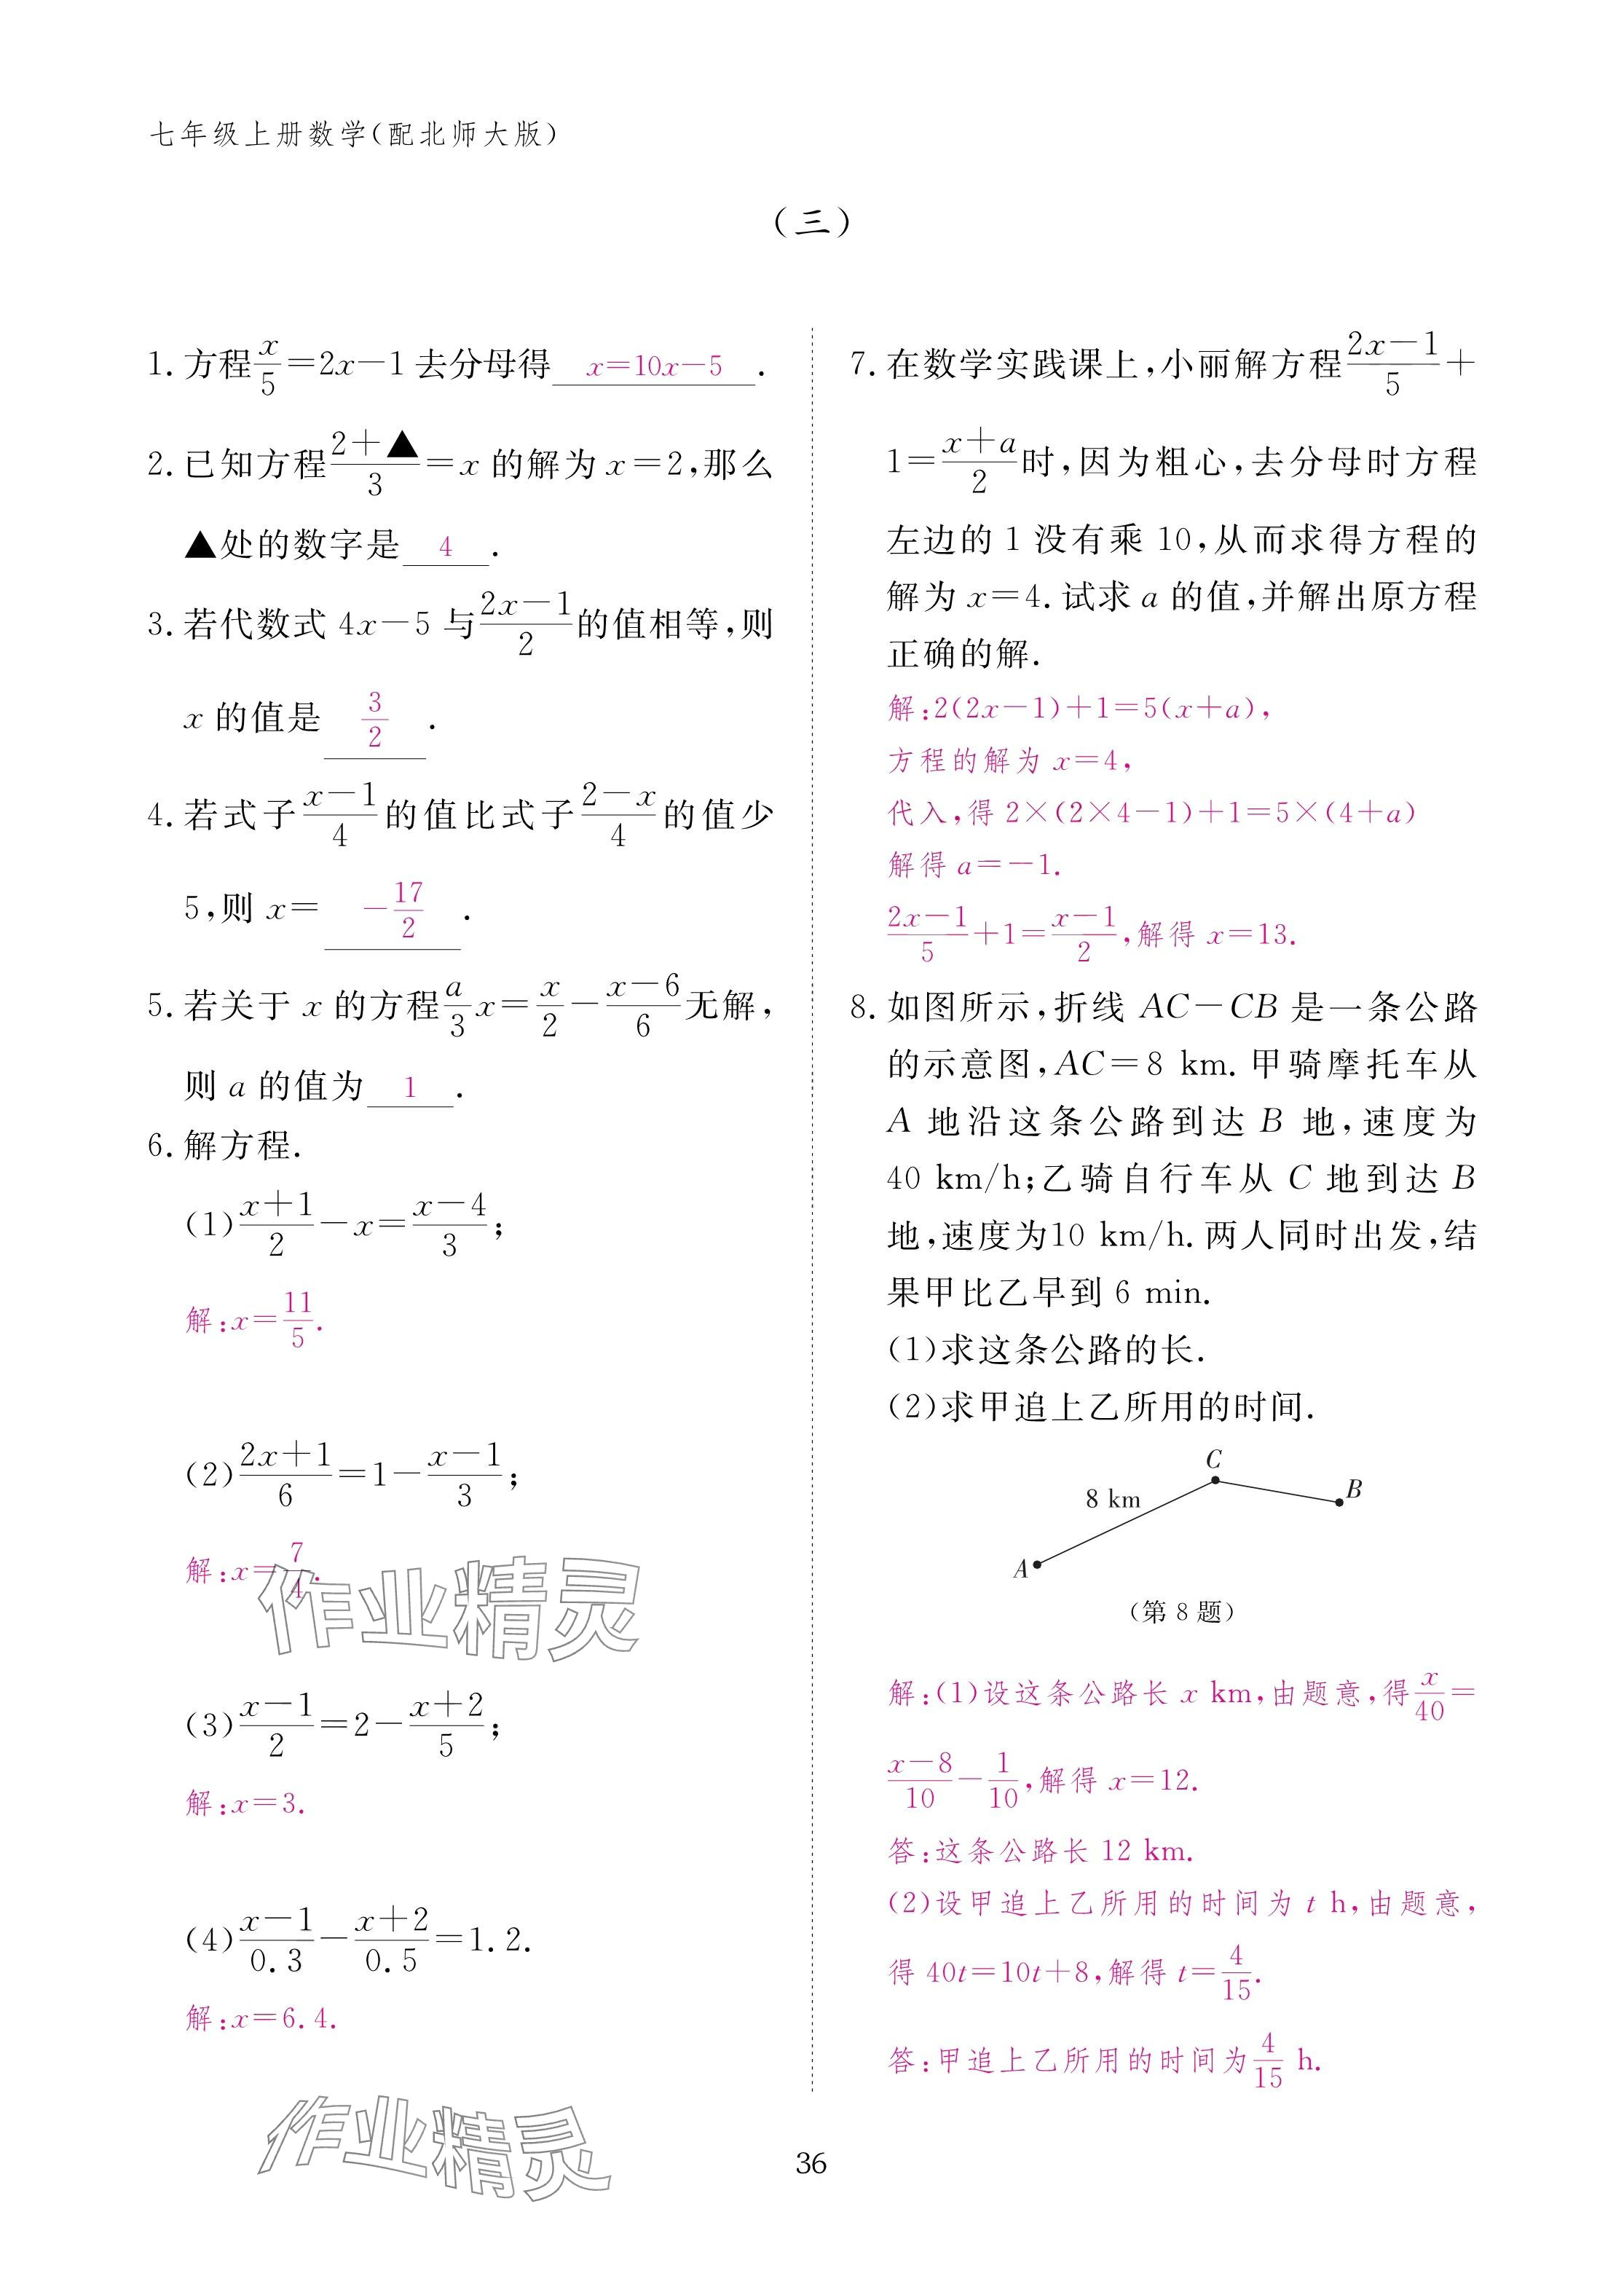 七年级上册数学(配北师大版)
(三)
1. 方程x/5=2x-1 去分母得 x=10x-5 .
2. 已知方程(2+▲)/3=x 的解为 x=2,那么
▲处的数字是 4 .
3. 若代数式 4x-5 与(2x-1)/2的值相等,则
x 的值是 3/2 .
4. 若式子(x-1)/4的值比式子(2-x)/4的值少
5,则 x= -17/2 .
5. 若关于 x 的方程a/3 x=x/2-(x-6)/6无解,
则 a 的值为 1 .
6. 解方程.
(1)(x+1)/2-x=(x-4)/3;
解:x=11/5.
(2)(2x+1)/6=1-(x-1)/3;
解:x=7/4.
作业精灵
(3)(x-1)/2=2-(x+2)/5;
解:x=3.
(4)(x-1)/0.3-(x+2)/0.5=1.2.
解:x=6.4.
7. 在数学实践课上,小丽解方程(2x-1)/5+
1=(x+a)/2时,因为粗心,去分母时方程
左边的 1 没有乘 10,从而求得方程的
解为 x=4. 试求 a 的值,并解出原方程
正确的解.
解:2(2x-1)+1=5(x+a),
方程的解为 x=4,
代入,得 2×(2×4-1)+1=5×(4+a)
解得 a=-1.
(2x-1)/5+1=(x-1)/2,解得 x=13.
8. 如图所示,折线 AC-CB 是一条公路
的示意图,AC=8 km. 甲骑摩托车从
A 地沿这条公路到达 B 地,速度为
40 km/h;乙骑自行车从 C 地到达 B
地,速度为10 km/h. 两人同时出发,结
果甲比乙早到 6 min.
(1)求这条公路的长.
(2)求甲追上乙所用的时间.
C
8 km
B
A
(第 8 题)
解:(1)设这条公路长 x km,由题意,得x/40=
(x-8)/10-1/10,解得 x=12.
答:这条公路长 12 km.
(2)设甲追上乙所用的时间为 t h,由题意,
得 40t=10t+8,解得 t=4/15.
答:甲追上乙所用的时间为4/15 h.
作业精灵
36